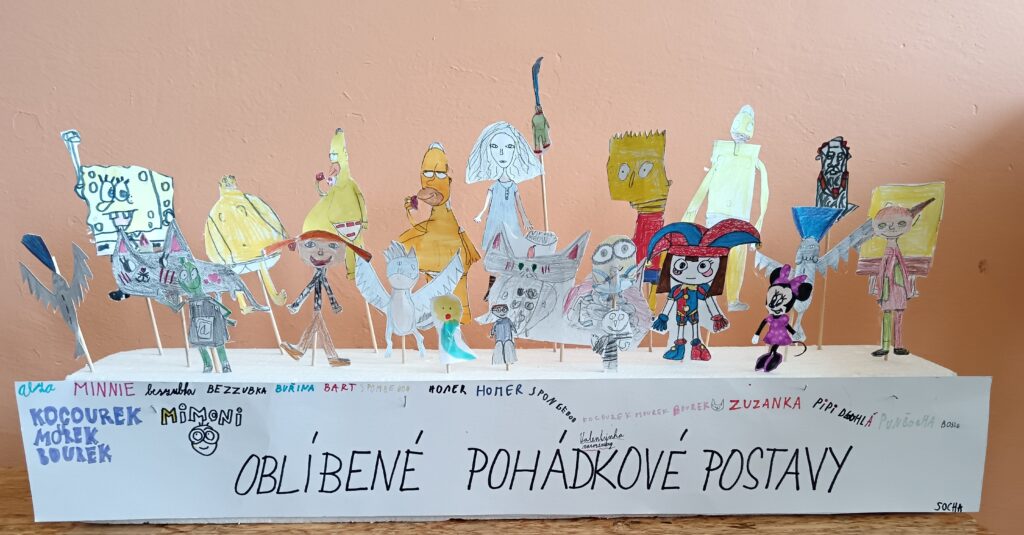 MINNIE bezzubka BEZZUBKA BUŘINA BART SPONGEBOB HOMER HOMER SPONGEBOB KOCOUREK MOUREK BOUREK ZUZANKA PIPI DLOUHLÁ PUNČOCHA
KOCOUREK
MOREK
BOUREK
MiMONi
Valentýnka
OBLÍBENÉ POHÁDKOVÉ POSTAVY
SOCHA